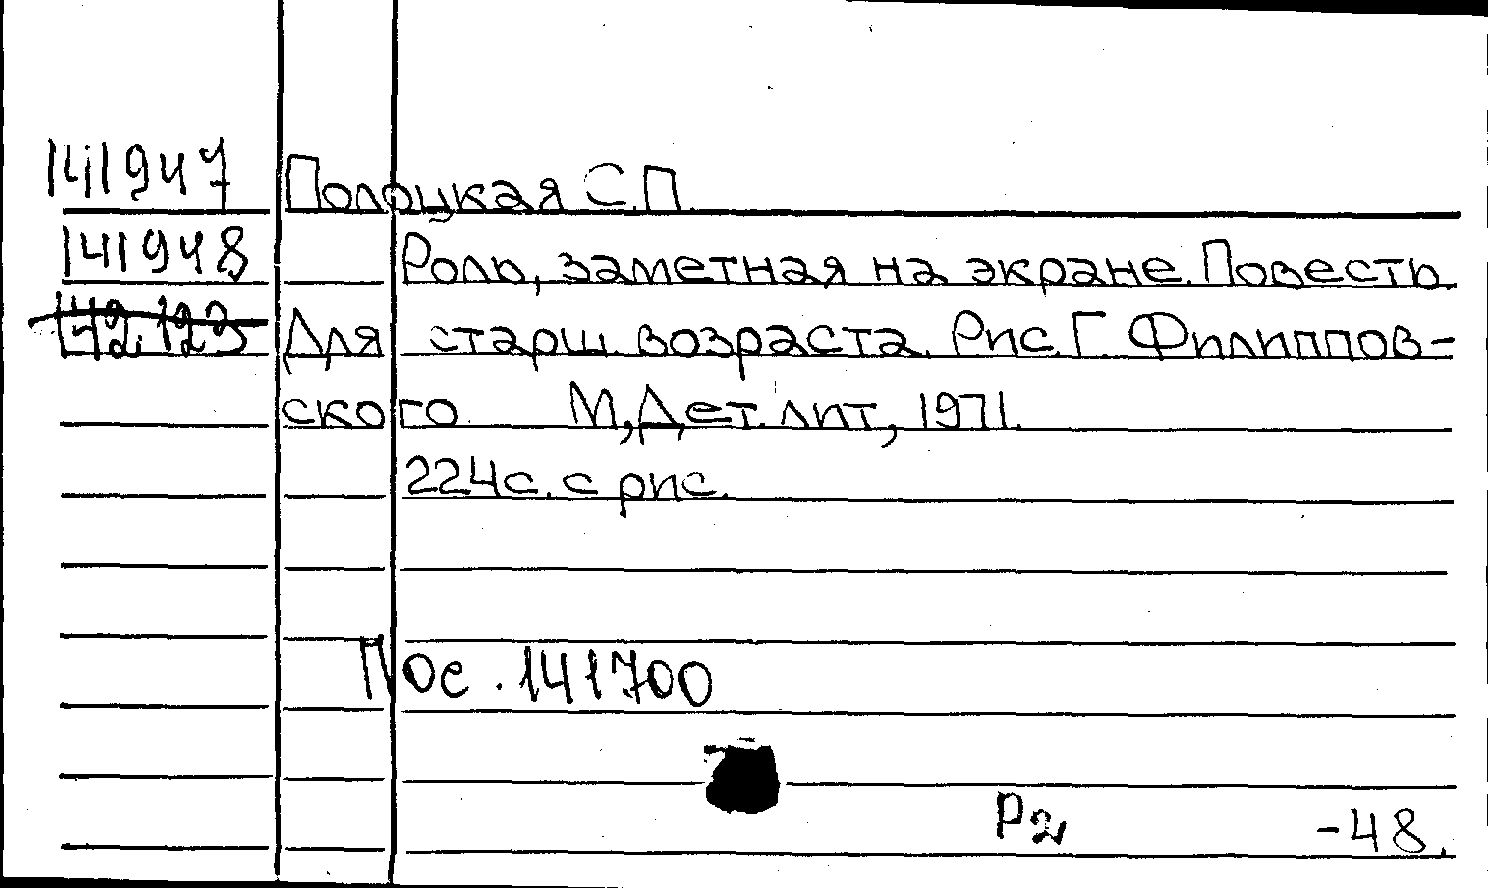 141947 Полоцкая С.П.
141948 Роль, заметная на экране. Повесть
142.123 Для старш. возраста. Рис. Г. Филиппов-
ского М, Дет. лит, 1971.
224с. с рис.
Пос. 141700
Р2 -48.